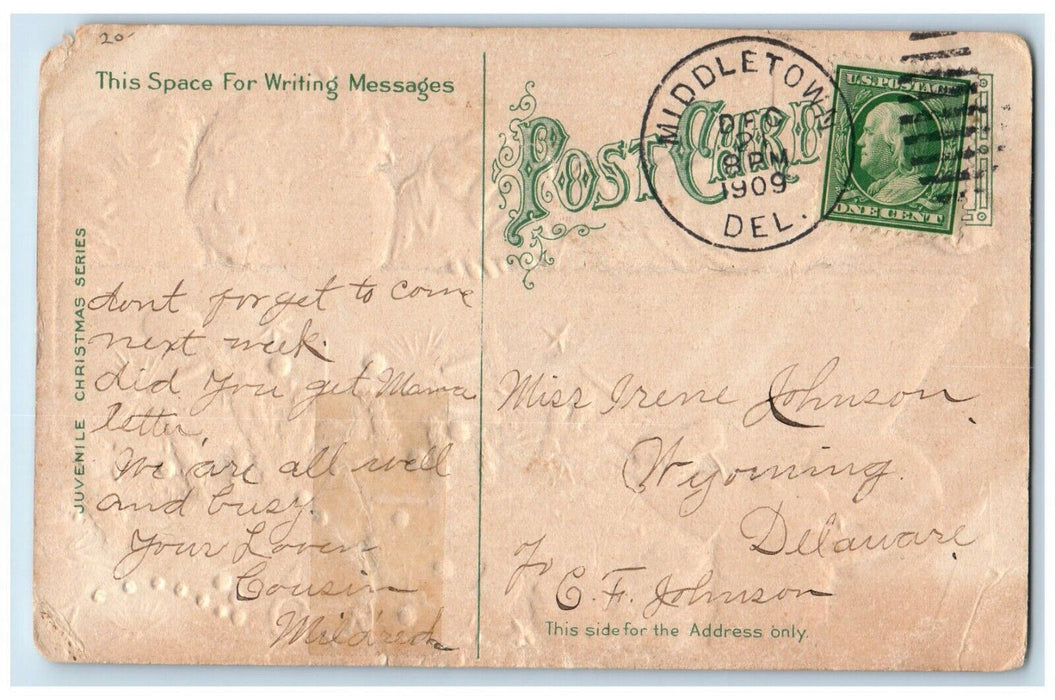 20
This Space For Writing Messages
POST CARD
MIDDLETOWN
DEC
8 PM
1909
DEL.
U.S. POSTAGE
ONE CENT
JUVENILE CHRISTMAS SERIES
dont forget to come
next week.
did You get Mama
letter
We are all well
and busy.
Your Loven
Cousin
Mildred
Miss Irene Johnson
Wyoming
Delaware
To
C. F. Johnson
This side for the Address only.